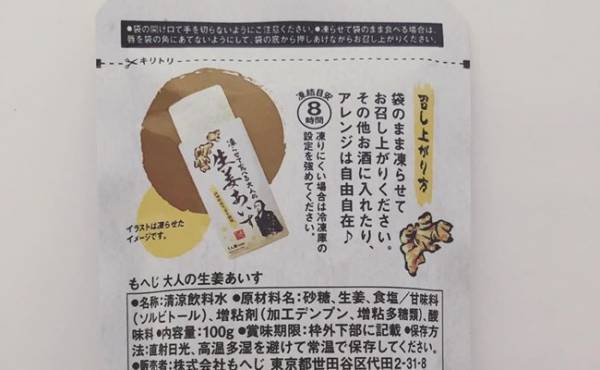 ●袋の開け口で手を切らないようにご注意ください。●凍らせて袋のまま食べる場合は、
唇を袋の角にあてないようにして、袋の底から押しあけながらお召し上がりください。
キリトリ
召し上がり方
袋のまま凍らせて
お召し上がりください。
その他お酒に入れたり、
アレンジは自由自在♪
凍結目安
8
時間
凍りにくい場合は冷凍庫の
設定を強めてください。
凍らせて食べる大人の
生姜あいす
イラストは凍らせた
イメージです。
もへじ 大人の生姜あいす
●名称:清涼飲料水 ●原材料名:砂糖、生姜、食塩／甘味料
(ソルビトール)、増粘剤(加工デンプン、増粘多糖類)、酸
味料 ●内容量:100g ●賞味期限:枠外下部に記載 ●保存方
法:直射日光、高温多湿を避けて常温で保存してください。
●販売者:株式会社もへじ 東京都世田谷区代田2-31-8